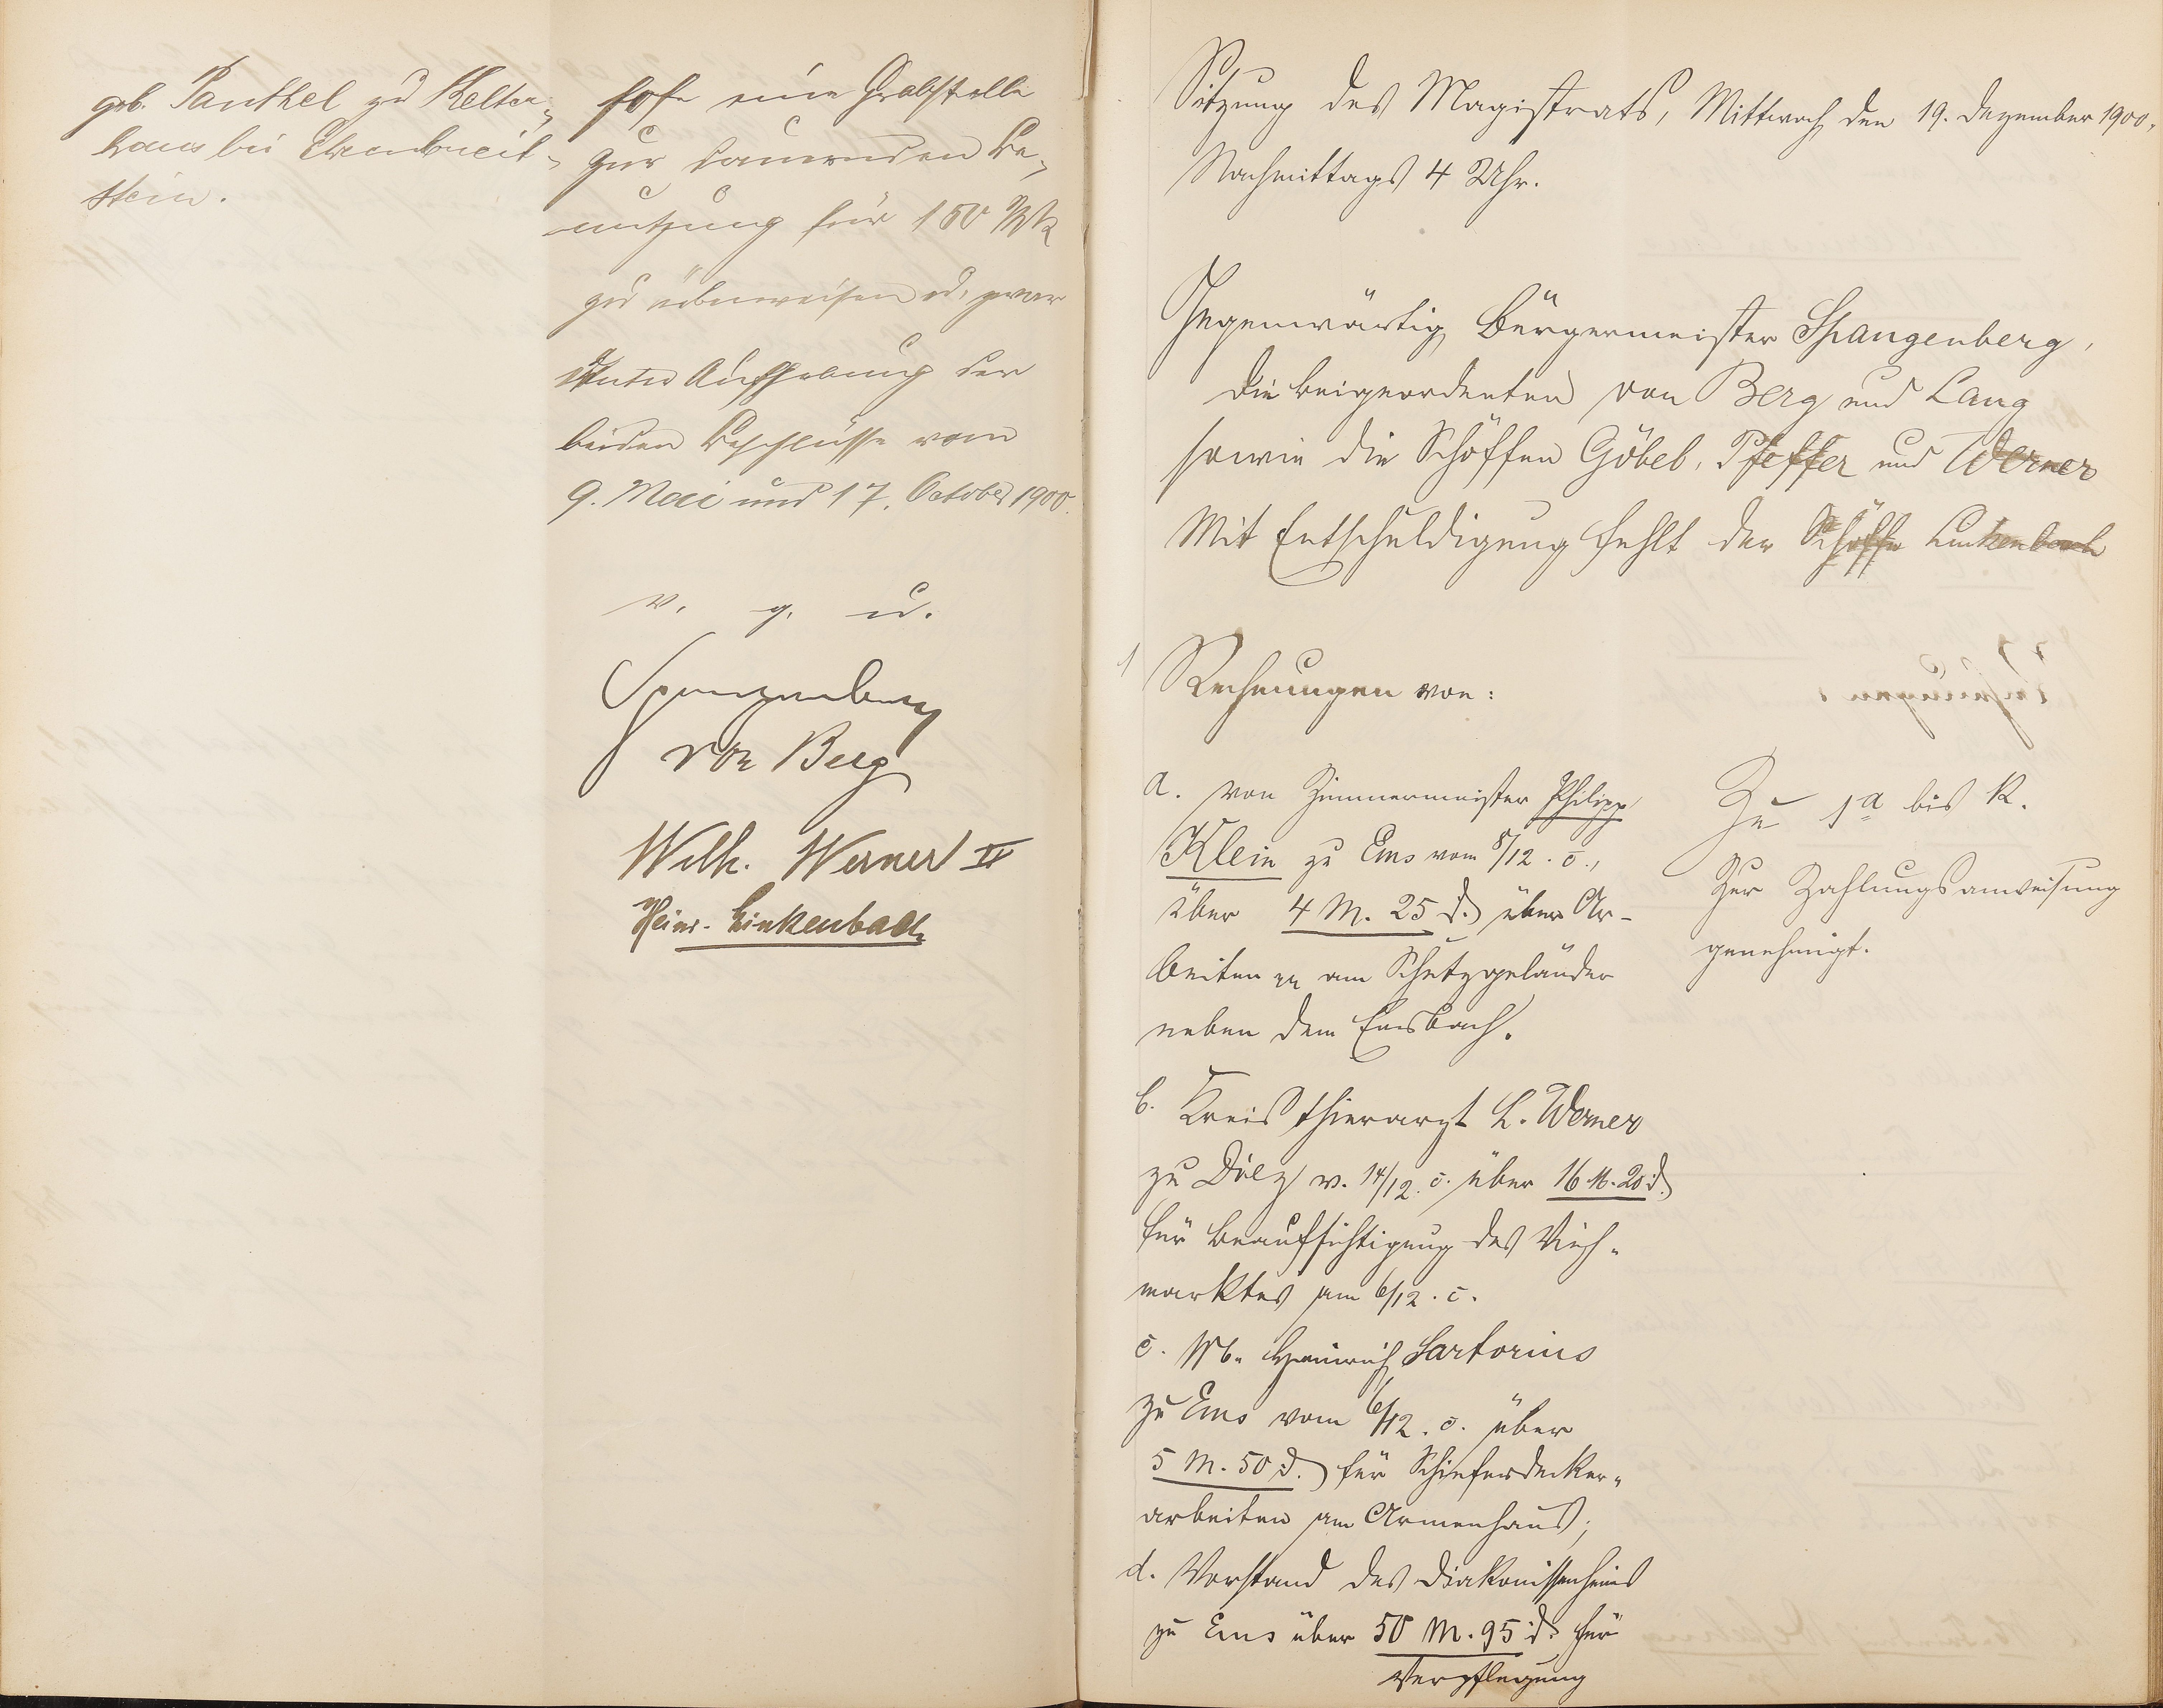 geb. Panthel zu Kelter-
haus bei Ehrenbreit-
stein.
hofe eine Grabstelle
zur dauernden Be-
nutzung für 150 Mk
zu überweisen u. zwar
unter Aufhebung der
beiden Beschlüsse vom
9. Mai und 17. October 1900.
v. g. u.
Spangenberg
von Berg
Wilh. Werner II
Heinr. Linkenbach
Sitzung des Magistrats, Mittwoch den 19. Dezember 1900,
Nachmittags 4 Uhr.
Gegenwärtig Bürgermeister Spangenberg,
die Beigeordneten von Berg und Lang
sowie die Schöffen Göbel, Pfeffer und Werner
Mit Entschuldigung fehlt der Schöffe Linkenbach
1 Rechnungen von:
a. von Zimmermeister Philipp
Klein zu Ems vom 8/12. c.,
über 4 M. 25 d. über Ar-
beiten am Schutzgeländer
neben dem Emsbach.
b. Kreisthierarzt L. Werner
zu Diez v. 14/12. c. über 16 M. 20 d.
für Beaufsichtigung des Vieh-
marktes am 6/12. c.
c. Wb. Heinrich Sartorius
zu Ems vom 6/12. c. über
5 M. 50 d. für Schieferdecker-
arbeiten am Armenhaus;
d. Vorstand des Diakonissenheims
zu Ems über 50 M. 95 d. für
Verpflegung
Zu 1a bis k.
Zur Zahlungsanweisung
genehmigt.